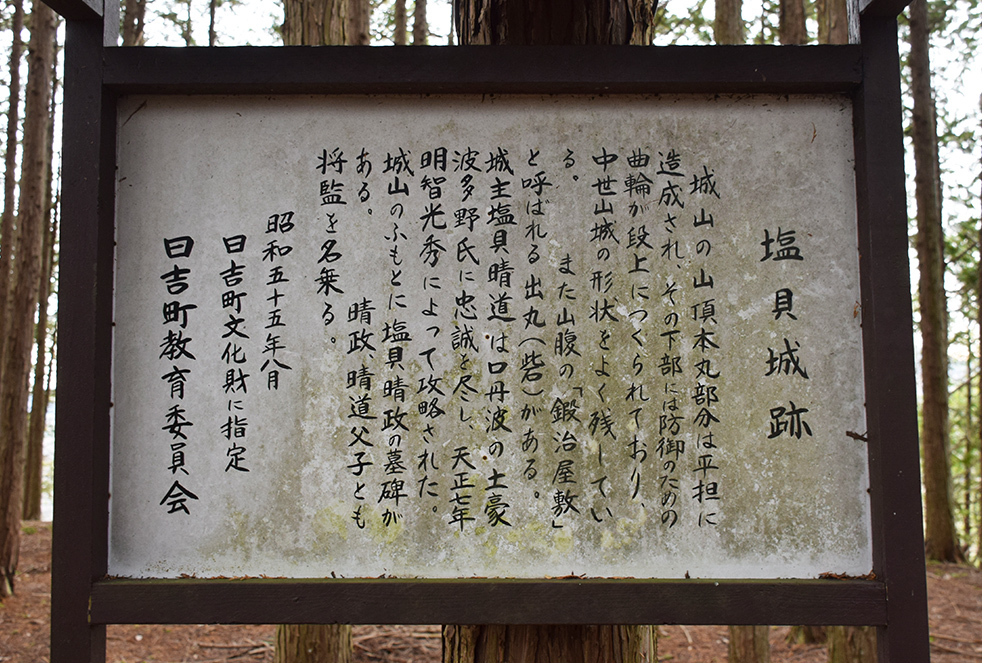 塩貝城跡
城山の山頂本丸部分は平担に
造成され、その下部には防御のための
曲輪が段上につくられており、
中世山城の形状をよく残してい
る。　また山腹の「鍛治屋敷」
と呼ばれる出丸(砦)がある。
城主塩貝晴道は口丹波の土豪
波多野氏に忠誠を尽し、天正七年
明智光秀によって攻略された。
城山のふもとに塩貝晴政の墓碑が
ある。　晴政、晴道父子とも
将監を名乗る。
昭和五十五年八月
日吉町文化財に指定
日吉町教育委員会